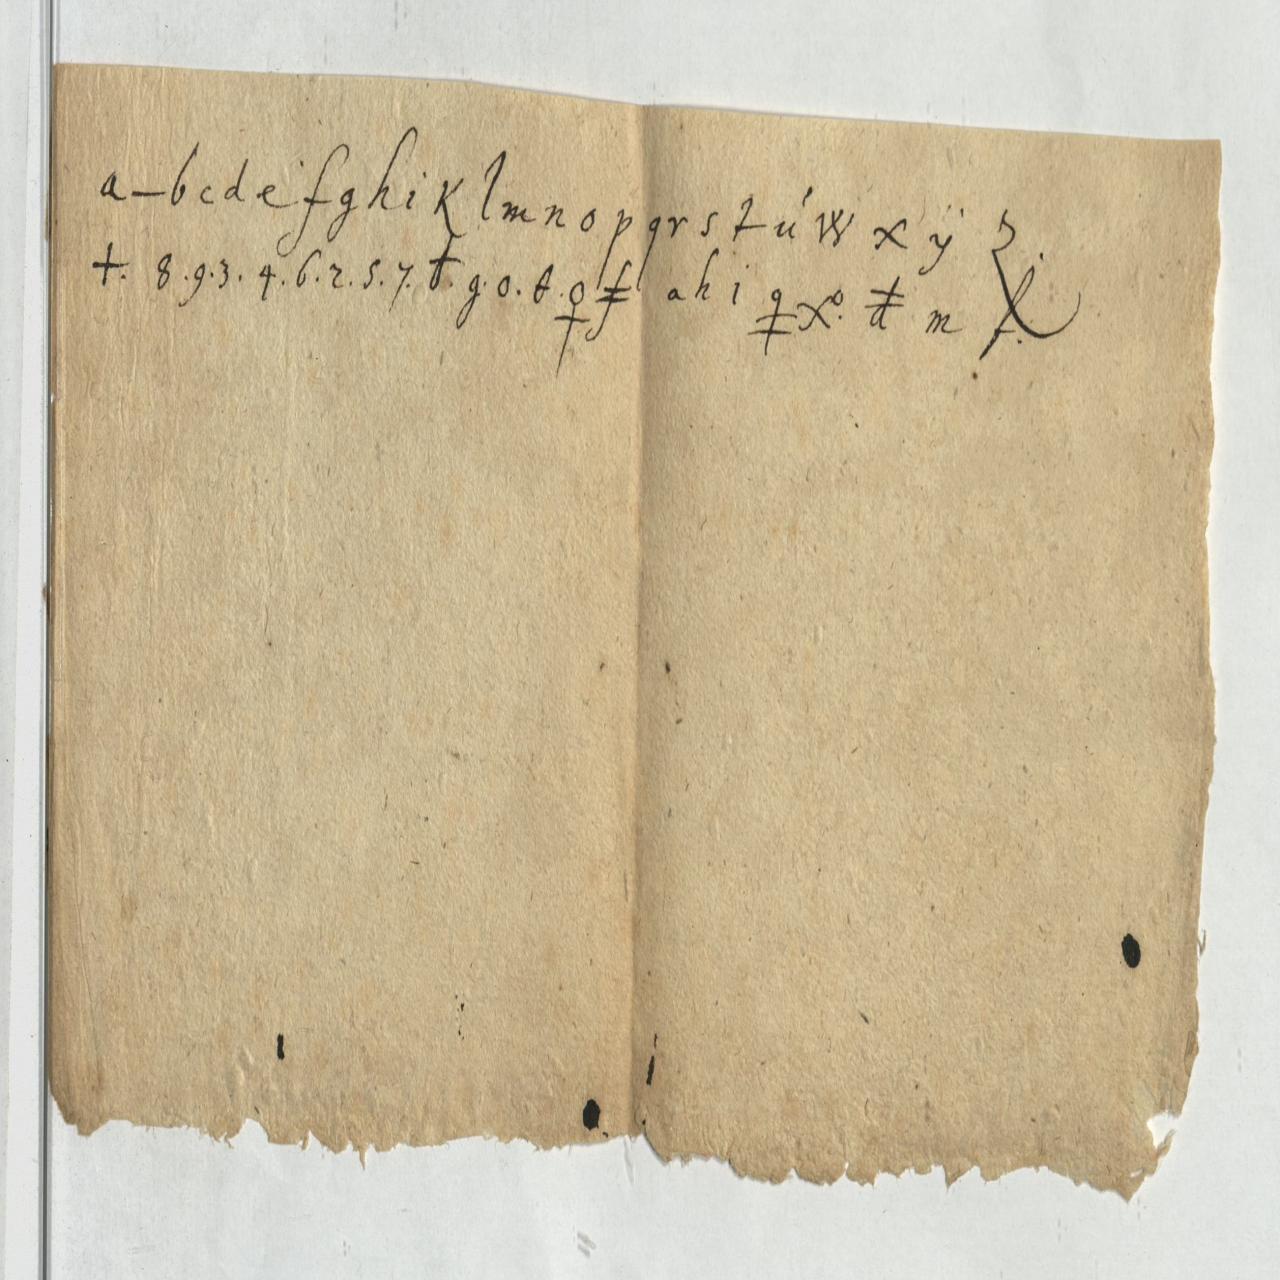 a-b c d e f g h i K l m n o p q r s t ú w x ÿ z
+. 8. 9. 3. 4. 6. 2. 5. 7. ŧ. g. o. t. q f a h i q x° đ m f.